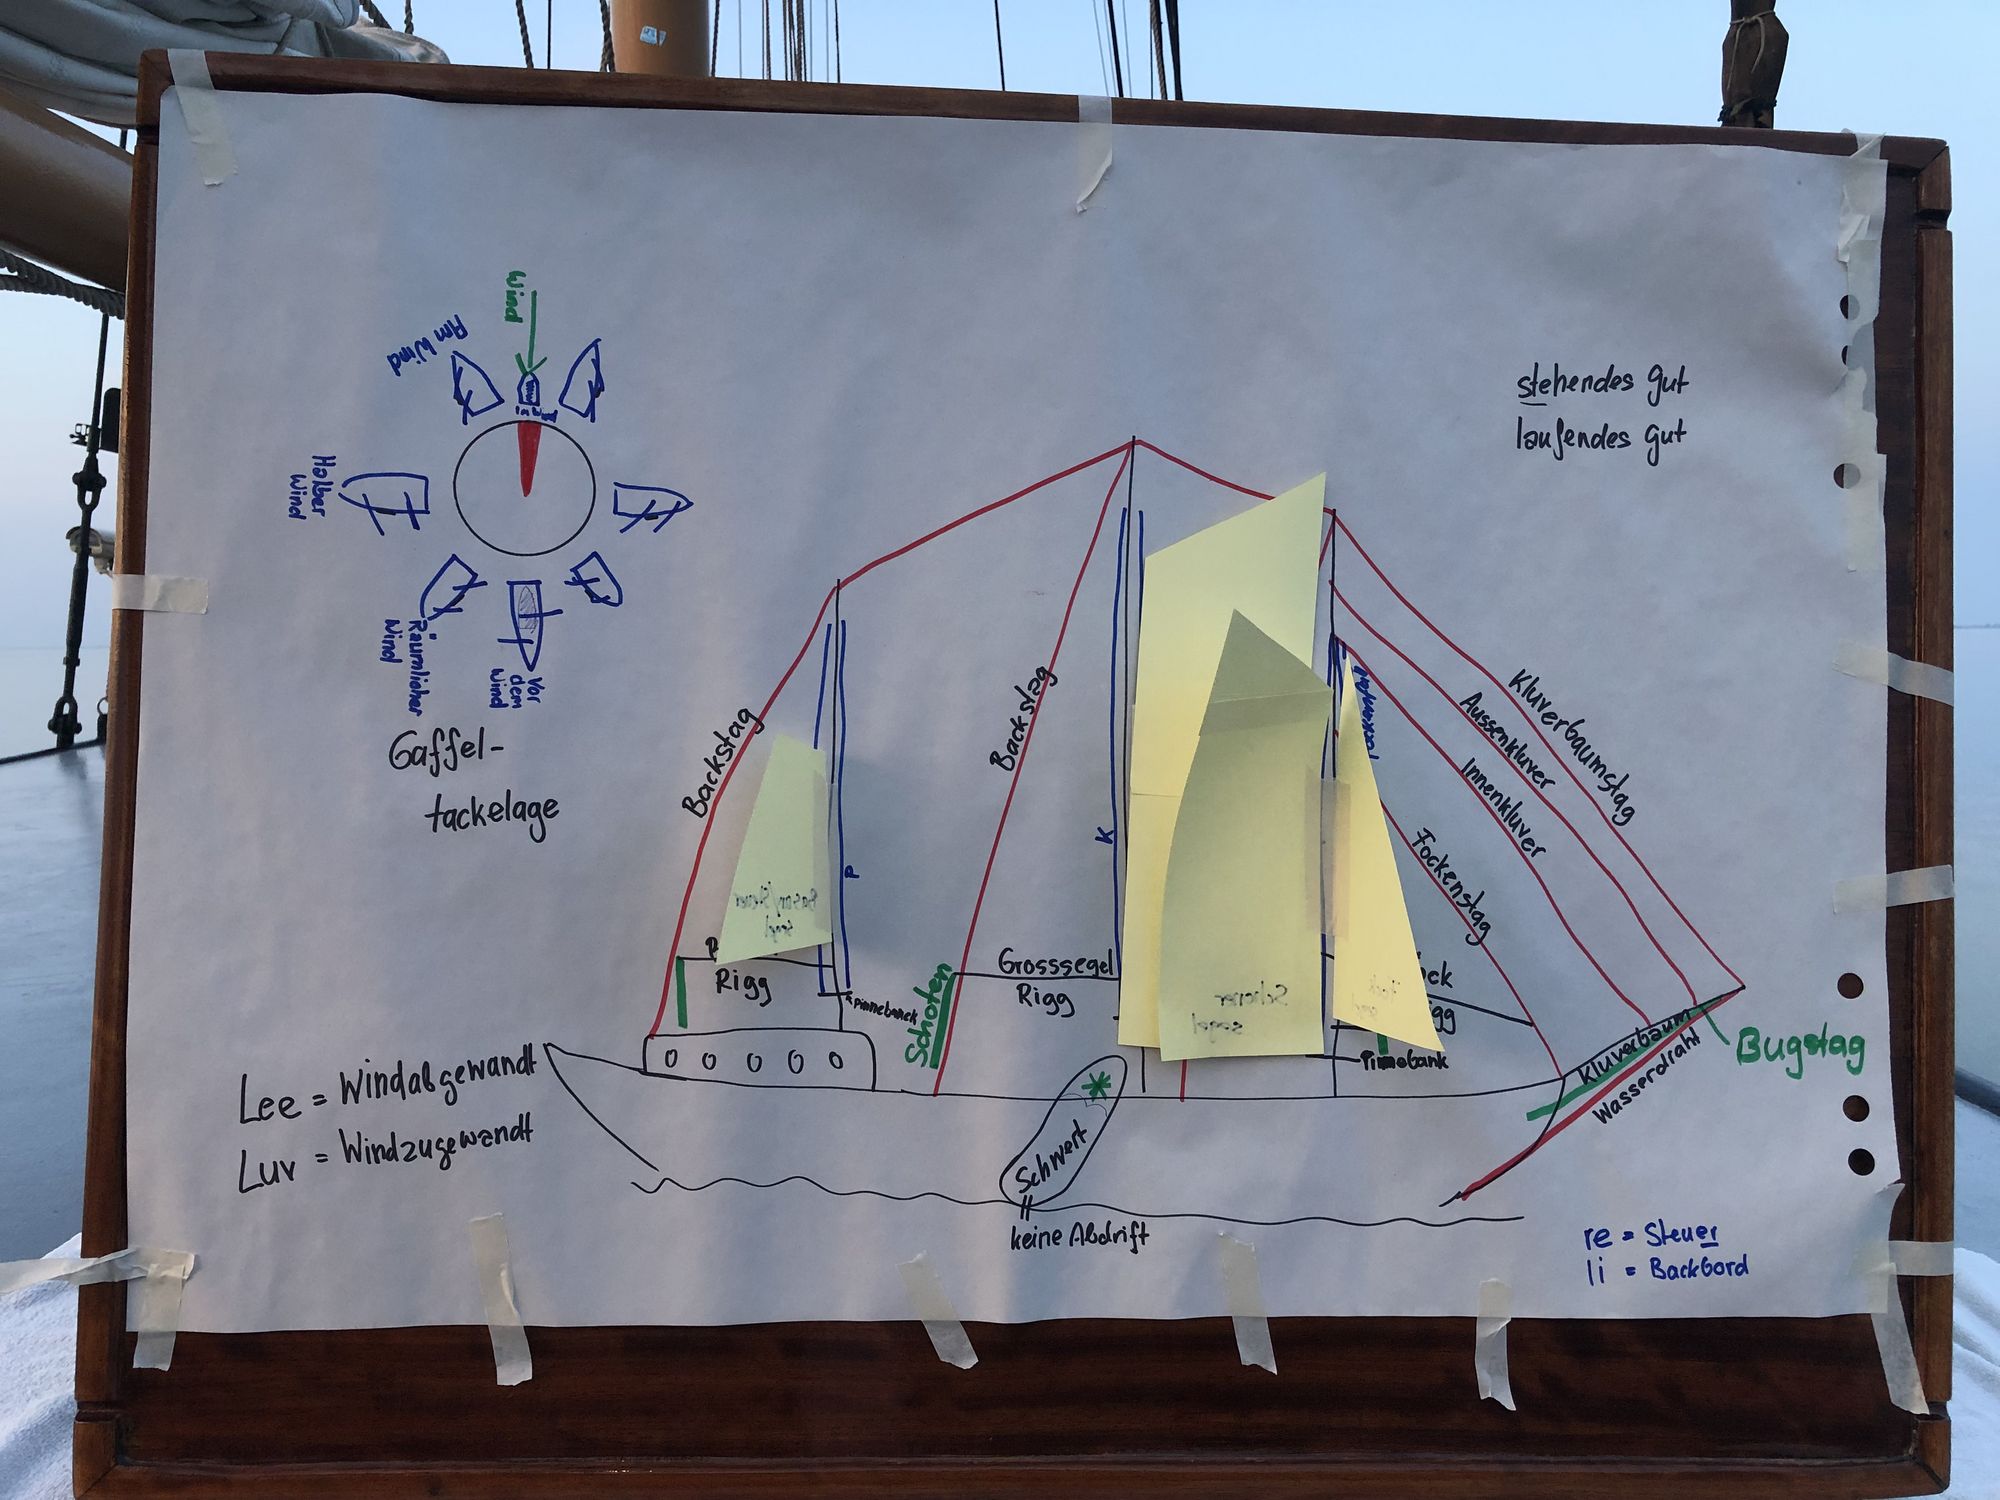 Wind
Am Wind
Im Wind
Halber
Wind
Räumlicher
Wind
Vor
dem
Wind
Gaffel-
tackelage
stehendes gut
laufendes gut
Backstag
Backstag
Kluverbaumstag
Aussenkluver
Innenkluver
Fockenstag
P
K
Besan/Steuer
segel
Rigg
Pinnebanck
Schoten
Grosssegel
Rigg
Schoner
segel
Pinnebank
Kluverbaum
Wasserdraht
Bugstag
Lee = Windabgewandt
Luv = Windzugewandt
Schwert
keine Abdrift
re = Steuer
li = Backbord